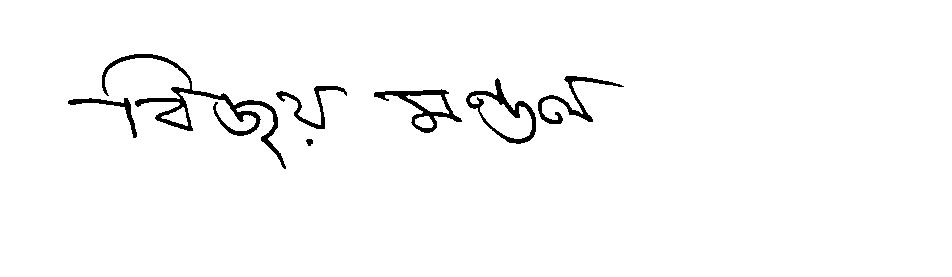 বিজয় মন্ডল